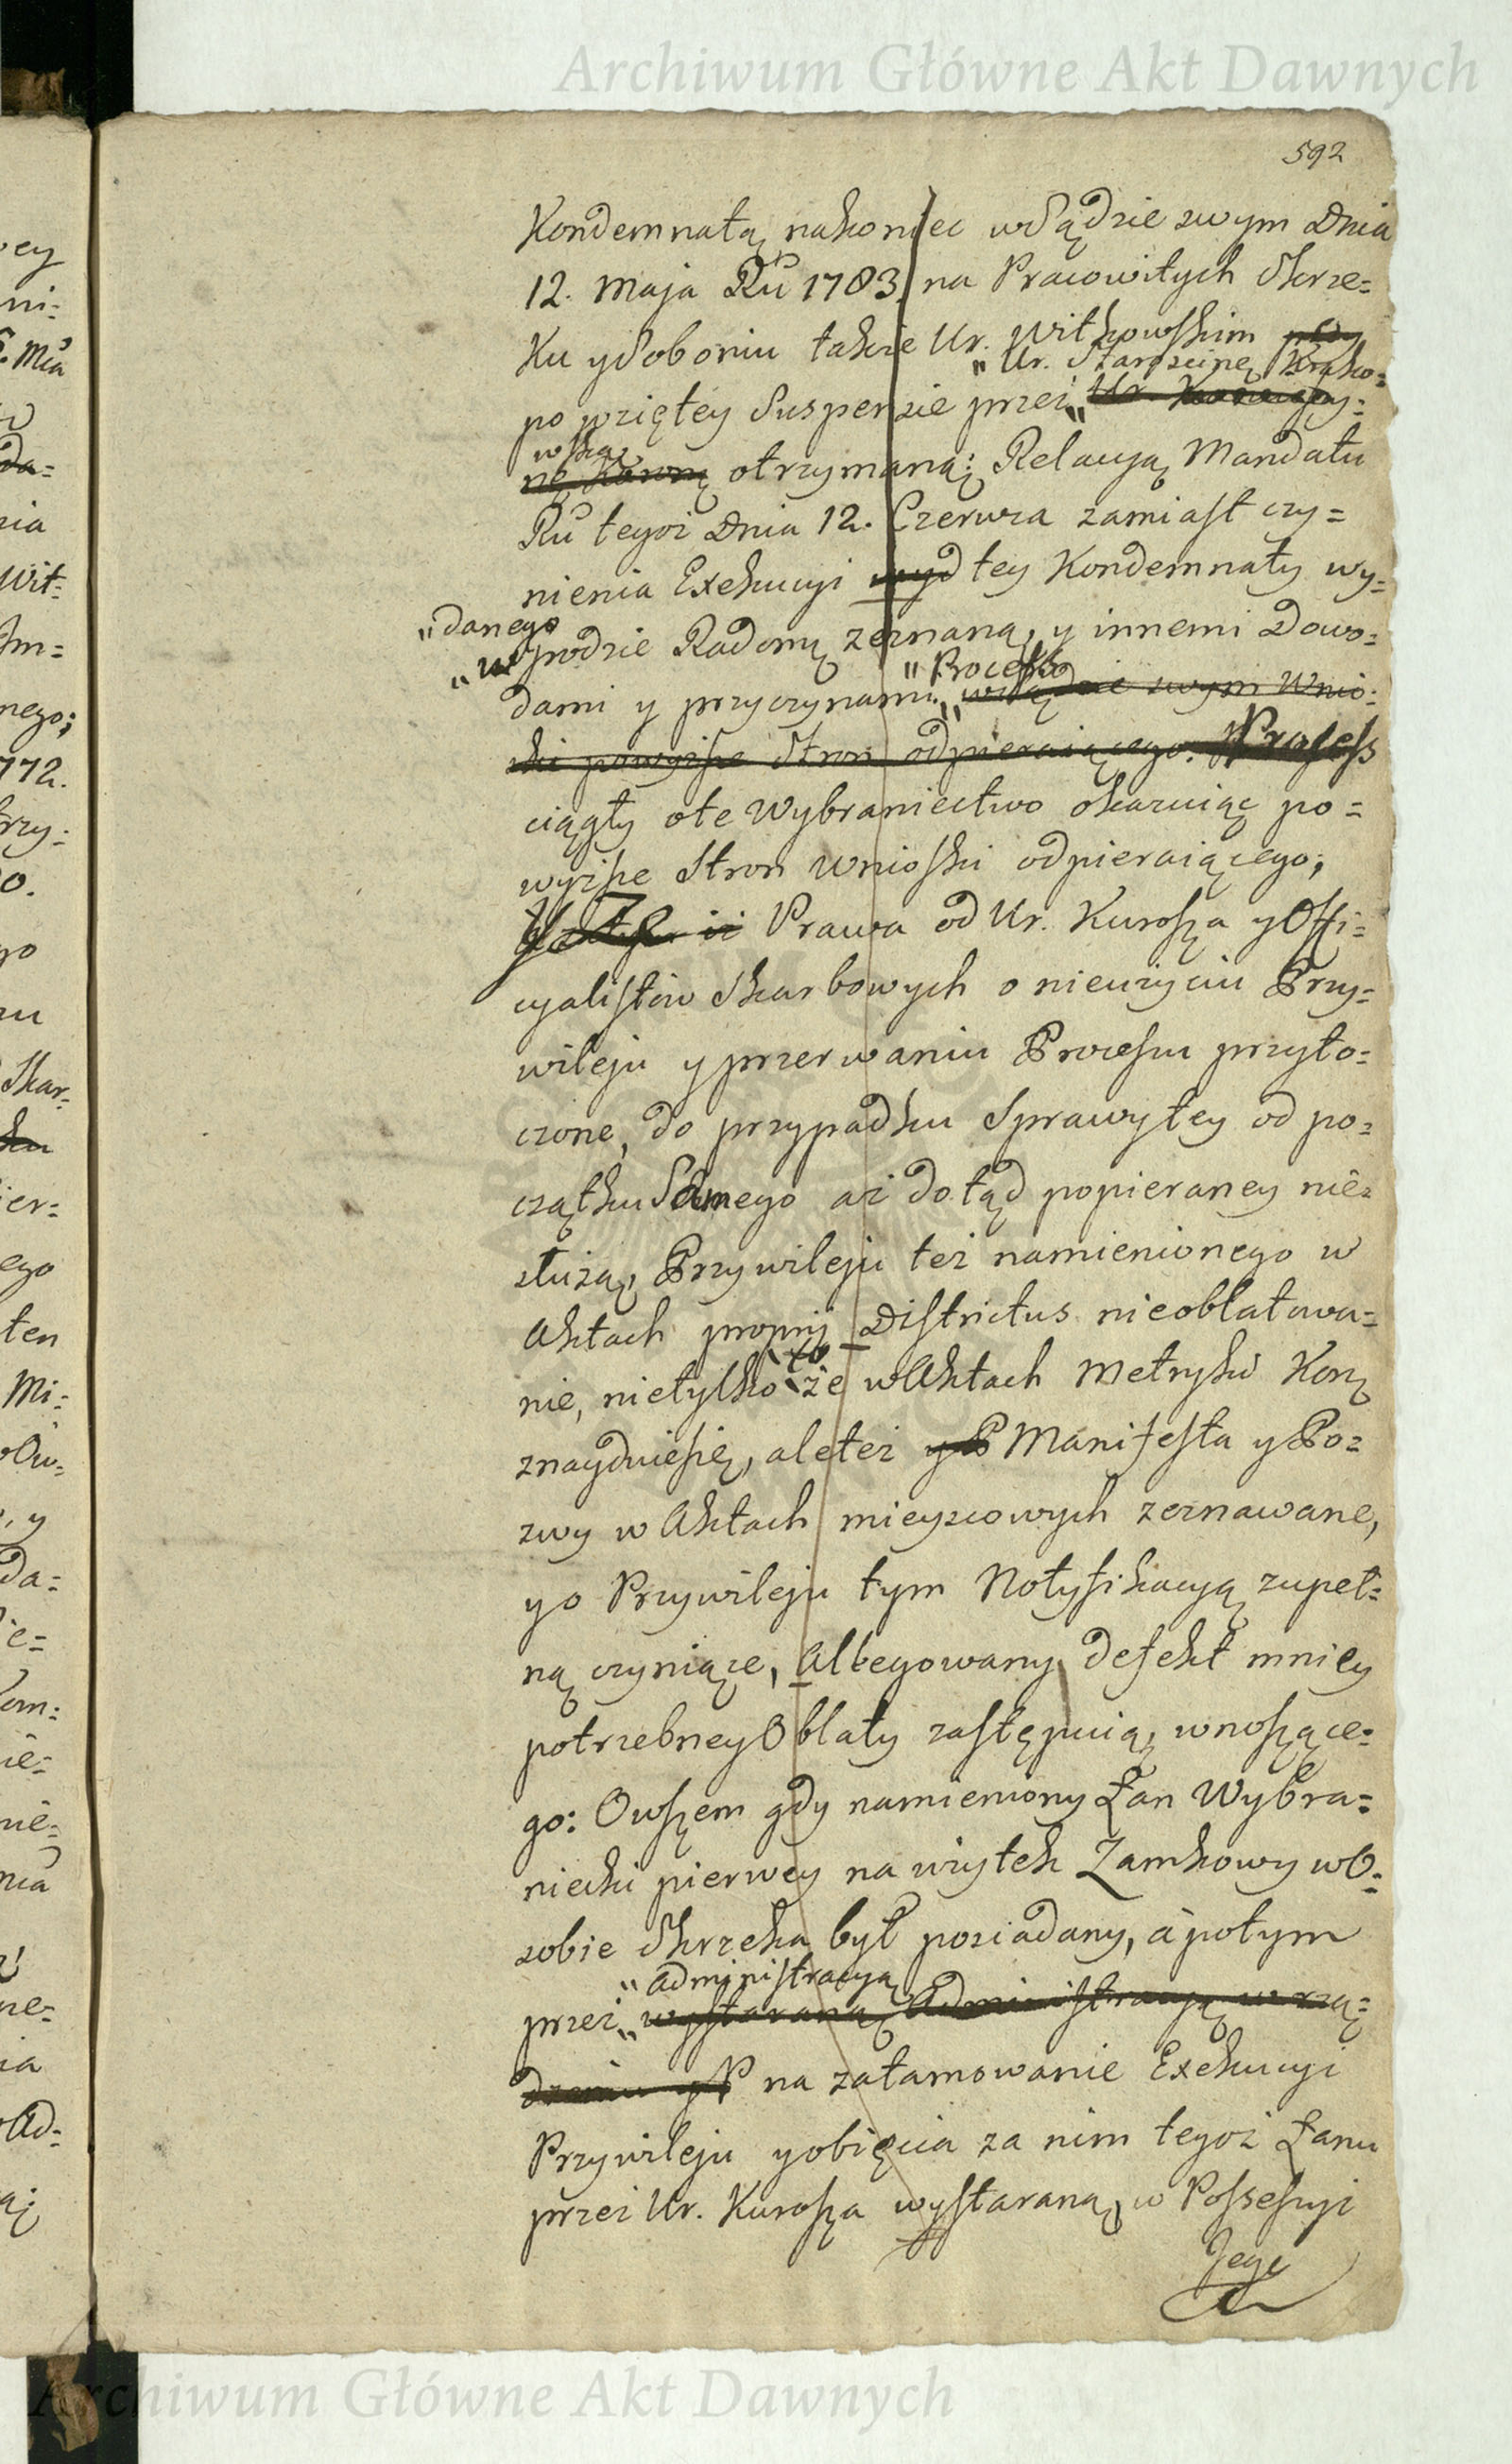 Archiwum Główne Akt Dawnych
592
Kondemnatą nakoniec w Sądzie swym Dnia
12. Maja Ru 1783 na Pracowitych Skrze=
Ku y Soboniu także Ur. Witkowskim
„Ur. Starościnę Krako=
po wziętey Suspensie przez „Ur.
wską
otrzymaną; Relacyą Mandatu
Ru tegoż Dnia 12. Czerwca zamiast czy=
nienia Exekucyi wyd tey Kondemnaty wy=
„danego
„w grodzie Radomą zeznaną, y innemi Dowo=
„Process
dami y przyczynami „w Sądzie swym Wnio:
ski powyższe Stron odpieraiącego. Process
ciągły o te Wybraniectwo okazuiąc po=
wyższe Stron Wnioski odpieraiącego;
iż Prawa od Ur. Kurosza y Offi=
cyalistów Skarbowych o nieużyciu Przy=
wileju y przerwaniu Processu przyto=
czone, do przypadku Sprawy tey od po=
czątku Samego aż dotąd popieraney nie=
służą, Przywileju też namienionego w
Aktach proprij Districtus nieoblatowa=
to
nie, nietylko że w Aktach Metryki Korą
znayduie się, ale też y P Manifesta y Po=
zwy w Aktach mieyscowych zeznawane,
y o Przywileju tym Notyfikacyą zupeł=
ną czyniące, Allegowany defekt mniey
potrzebney Oblaty zastępuią, wnoszące=
go: Owszem gdy namieniony Łan Wybra=
niecki pierwey na użytek Zamkowy w O=
sobie Skrzeka był posiadany, à potym
„Administracyą
przez „wystaraną Administracyą w rzą=
dzeniu y P na zatamowanie Exekucyi
Przywileju y obięcia za nim tegoż Łanu
przez Ur. Kurosza wystaraną, w Possessyi
Jego
Archiwum Główne Akt Dawnych